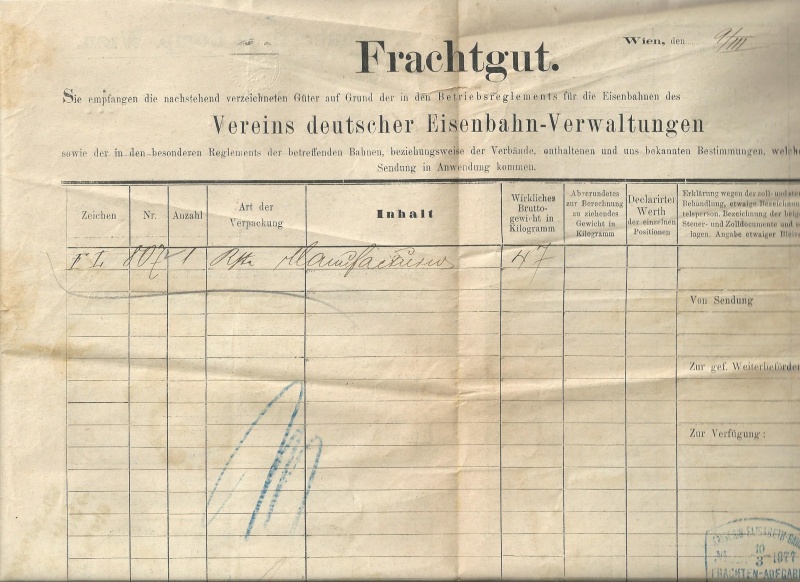 Wien, den 9/III
Frachtgut.
Sie empfangen die nachstehend verzeichneten Güter auf Grund der in den Betriebsreglements für die Eisenbahnen des
Vereins deutscher Eisenbahn-Verwaltungen
sowie der in den besonderen Reglements der betreffenden Bahnen, beziehungsweise der Verbände, enthaltenen und uns bekannten Bestimmungen, welche
Sendung in Anwendung kommen.
Zeichen
Nr.
Anzahl
Art der
Verpackung
Inhalt
Wirkliches
Brutto-
gewicht in
Kilogramm
Abgerundetes
zur Berechnung
zu ziehendes
Gewicht in
Kilogramm
Declarirter
Werth
der einzelnen
Positionen
Erklärung wegen der zoll- und steu
Behandlung, etwaige Bezeichnun
telsperson. Bezeichnung der beige
Steuer- und Zolldocumente und
lagen. Angabe etwaiger Bleive
807 1 47
Von Sendung
Zur gef. Weiterbeförde
Zur Verfügung:
ELISABETH-BAHN
10
3 1877
FRACHTEN-AUFGABE